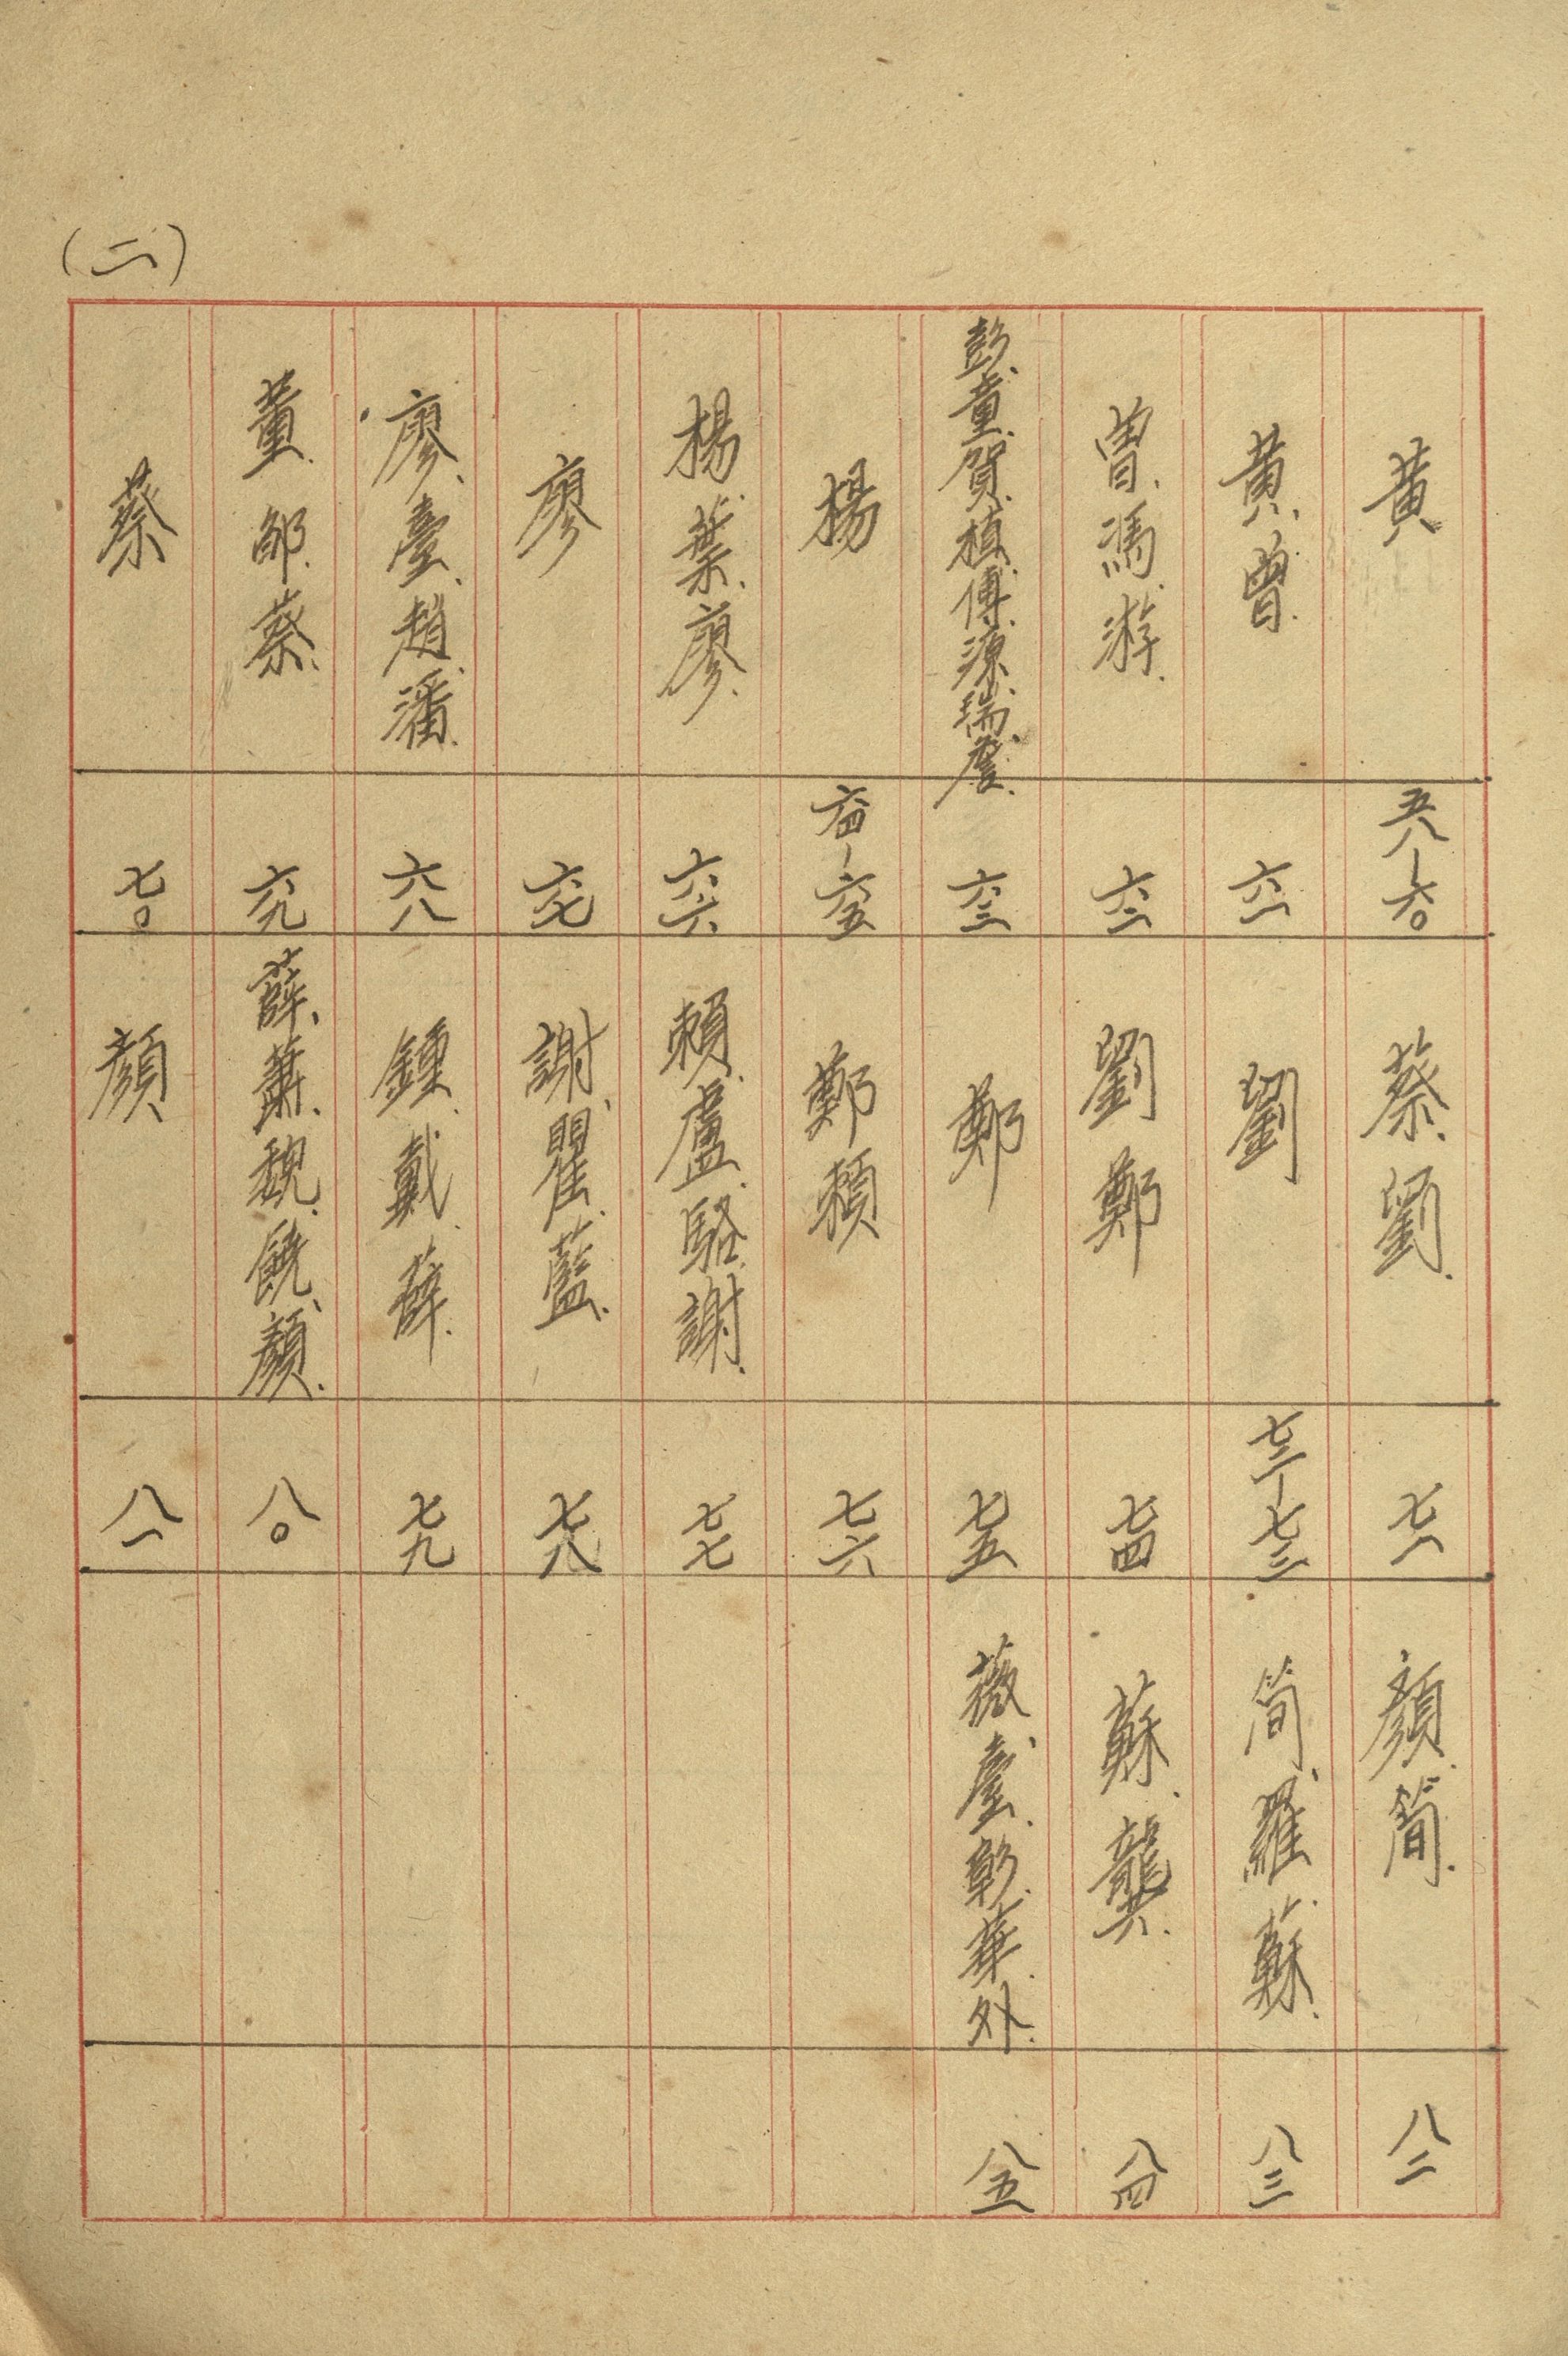 (二)
黃
五八-六〇
黃、曾、
六一
曾、馮、游、
六二
彭、童、賀、植、傅、源、瑞、詹、
六三
楊
六四-六五
楊、葉、廖、
六六
廖
六七
廖、臺、趙、潘、
六八
董、鄧、蔡、
六九
蔡
七〇
蔡、劉、
七一
劉
七二-七三
劉鄭
七四
鄭
七五
鄭賴
七六
賴、盧、駱、謝、
七七
謝、瞿、藍、
七八
鍾、戴、薛、
七九
薛、蕭、魏、饒、顏、
八〇
顏
八一
顏、簡、
八二
簡、羅、蘇、
八三
蘇、龔、
八四
薇、臺、彰、華、外、
八五